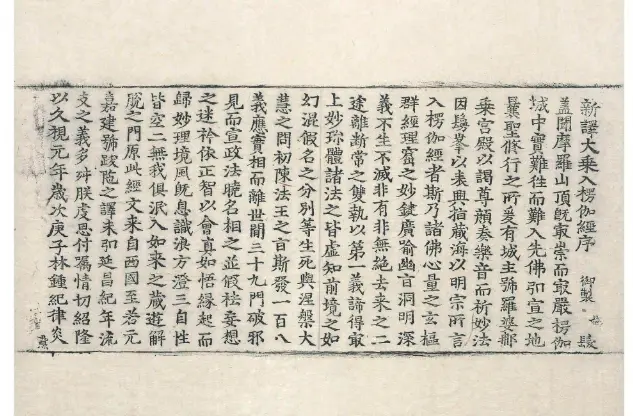 新譯大乘入楞伽經序 御製
蓋聞摩羅山頂既冣崇而冣嚴楞伽
城中實難往而難入先佛弘宣之地
曩聖修行之所爰有城主號羅婆那
乘宮殿以謁尊顏奏樂音而祈妙法
因鬘峯以表興指藏海以明宗所言
入楞伽經者斯乃諸佛心量之玄樞
群經理窟之妙鍵廣喻幽旨洞明深
義不生不滅非有非無絕去來之二
途離斷常之雙執以第一義諦得冣
上妙珎體諸法之皆虛知前境之如
幻混假名之分別等生死與涅槃大
慧之問初陳法王之旨斯發一百八
義應實相而離世間三十九門破邪
見而宣政法曉名相之並假袪妄想
之迷衿依正智以會真如悟緣起而
歸妙理境風既息識浪方澄三自性
皆空二無我俱泯入如來之藏遊解
脫之門原此經文來自西國至若元
嘉建號跋陁之譯未弘延昌紀年流
支之義多舛朕虔思付囑情切紹隆
以久視元年歲次庚子林鍾紀律炎